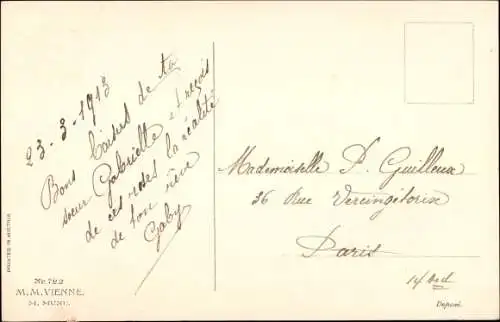 23-3-1913
Bons baisers de ta
sœur Gabrielle & reçois
de ces roses la réalité
de ton rêve
Gaby
Mademoiselle P. Guilleux
36 Rue Vercingétorix
Paris
14 Arrd
Deposé.
PRINTED IN AUSTRIA
Nr. 722
M.M.VIENNE.
M. MUNK.